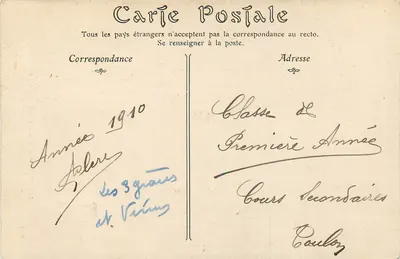 Carte Postale
Tous les pays étrangers n'acceptent pas la correspondance au recto.
Se renseigner à la poste.
Correspondance
Adresse
Année 1910
Les 3 grâces
et Vénus
Classe de
Première Année
Cours Secondaires
Toulon